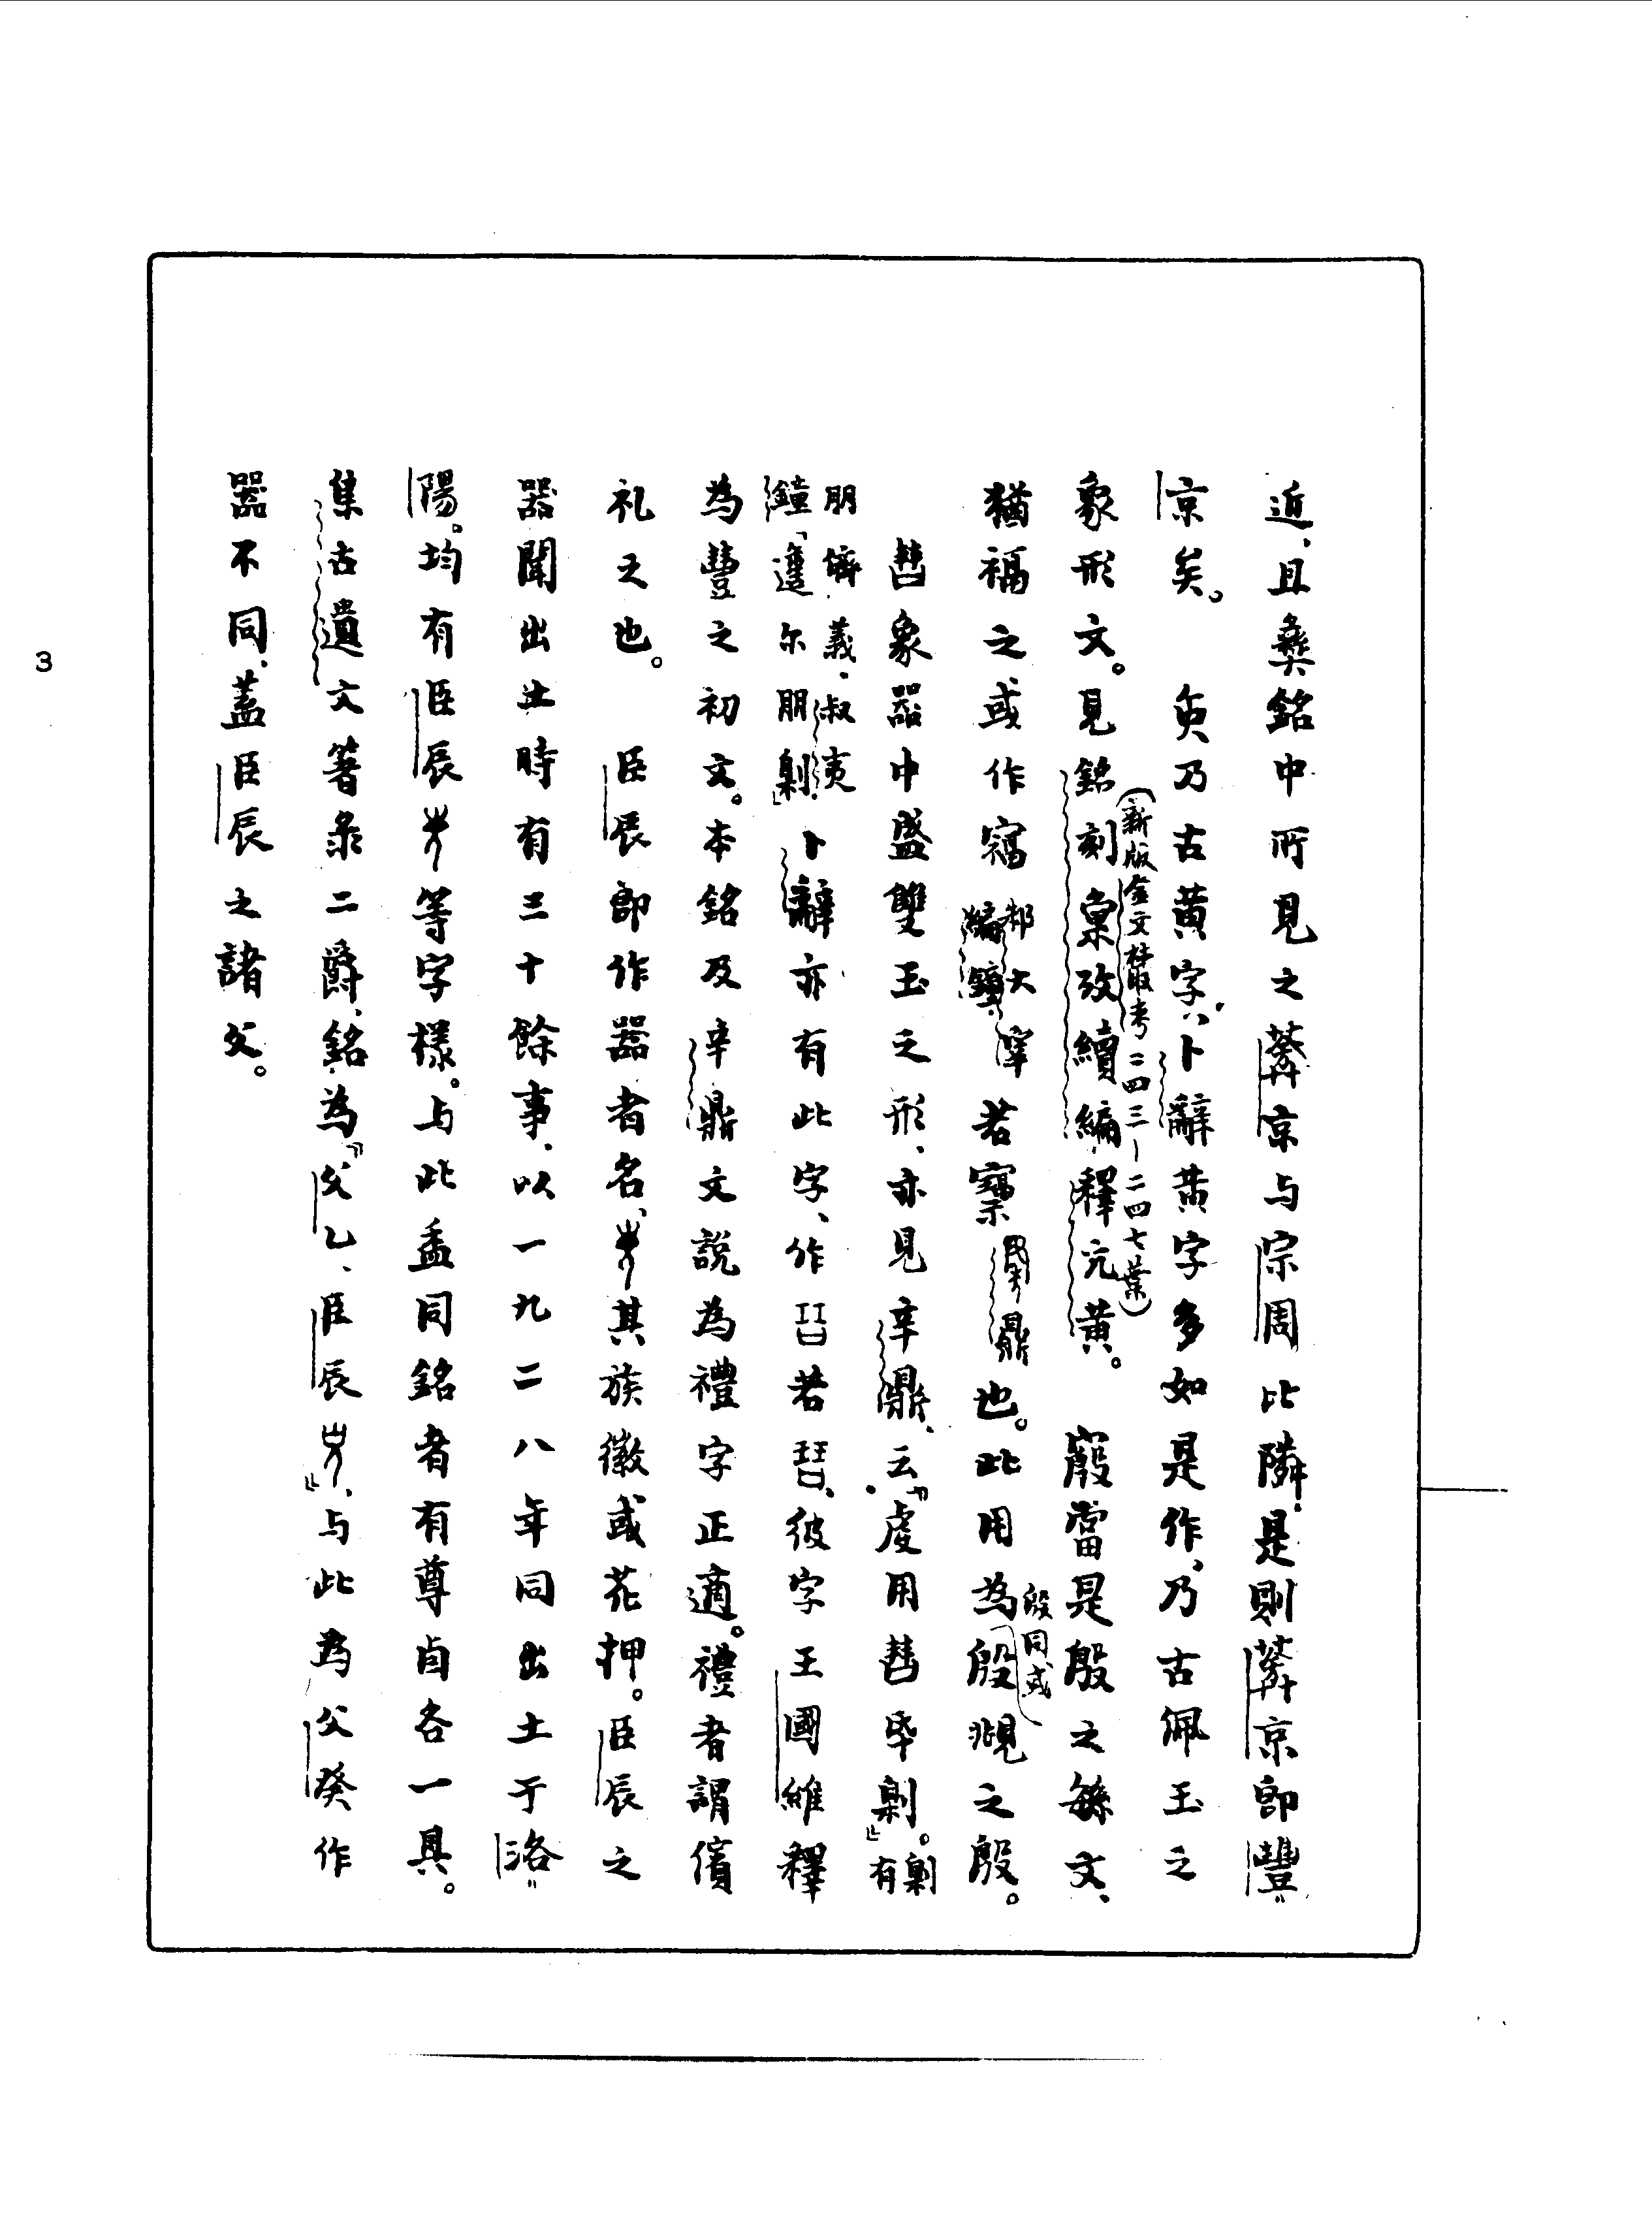 近、且彝銘中所見之䒶京与宗周比隣、是則䒶京即豐
京矣。 黃乃古黄字、卜辭黄字多如是作、乃古佩玉之
象形文。見銘刻彙攷續編釋亢黄。
(新版金文叢考二四三—二四七葉)
當是殷之緐文、
猶福之或作𥛁
都大宰
編鐘
若寶
鼎也。此用為殷覜之殷。
殷同或
𧯛象器中盛雙玉之形、亦見辛鼎、云『虔用𧯛氒剝。』
剝有
朋儕義、叔夷
鐘「𨖴尔朋剝」、
卜辭亦有此字、作 若 、彼字王國維釋
為豐之初文。本銘及辛鼎文説為禮字正適。禮者謂儐
礼之也。 臣辰即作器者名、 其族徽或花押。臣辰之
器聞出土時有三十餘事、以一九二八年同出土于洛
陽。均有臣辰 等字樣。与此盉同銘者有尊卣各一具。
集古遺文箸彔二爵、銘為『父乙、臣辰 』、与此為父癸作
器不同、蓋臣辰之諸父。
3